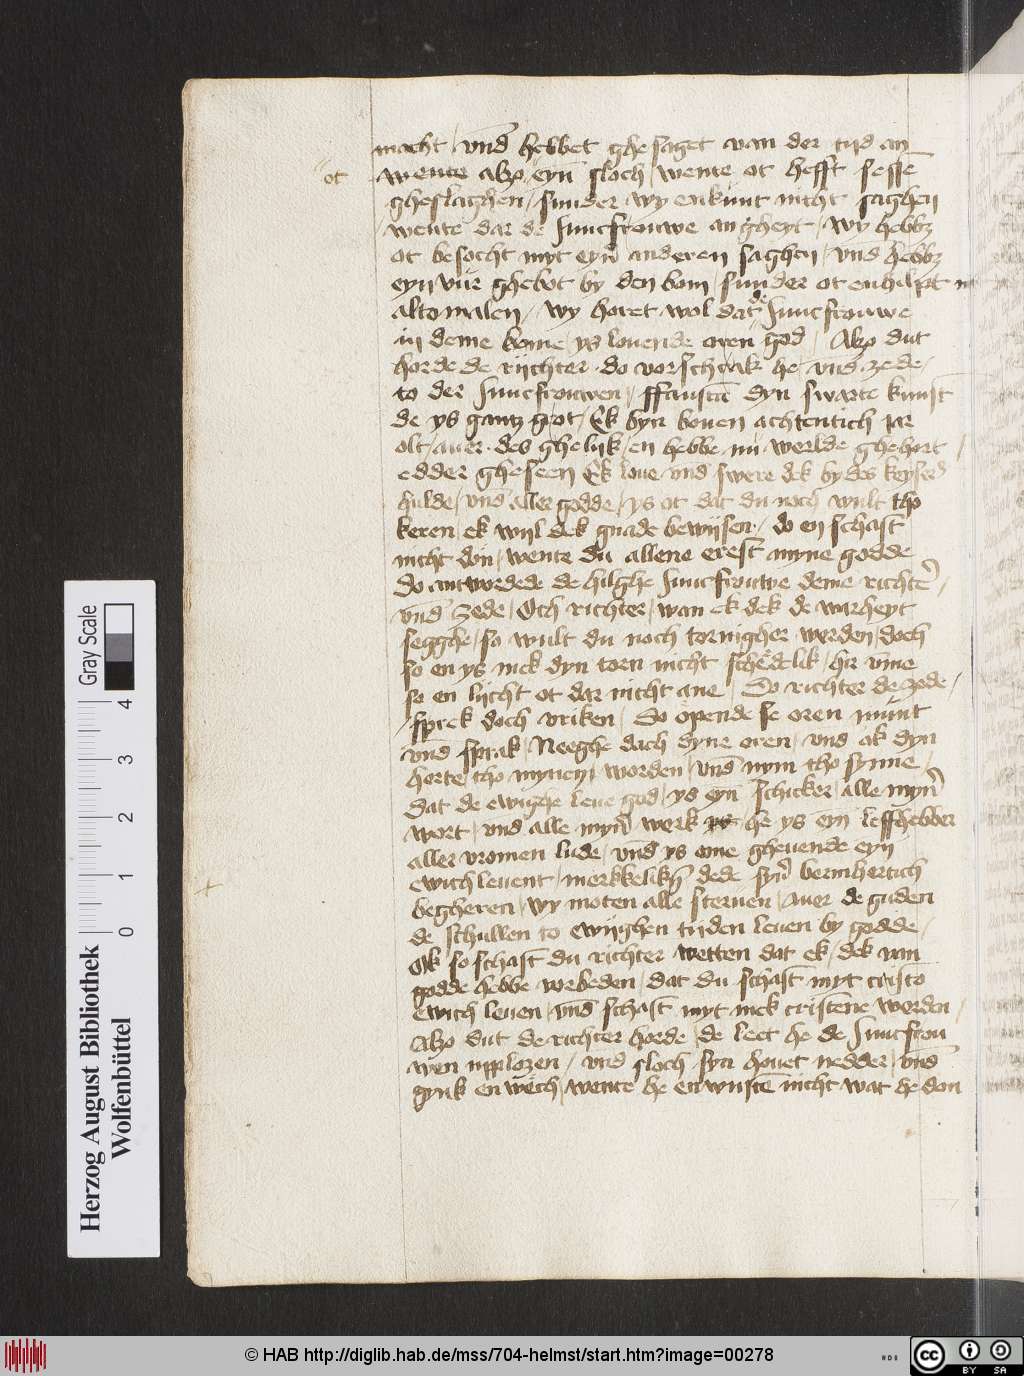 macht / vnd hebbet ghe saget van der tijd an
ot
wente alzo / eyn sloch / wente ot hefft sesse
gheslaghen / sunder wy enkunt nicht saghen
wente dar de Juncfrouwe an gheyt / wy hebbz
ot besocht myt eyn anderen saghen / vnd hebbz
eyn vůr ghebot by den bom / sunder ot enhilpt
alto malen / wy horet wol dat de Juncfrouwe
in deme bome ys louende oren god / Alzo dut
horde de rijchter do vorschrak he vnd zede /
to der Juncfrouwen / ffausta dyn swarte kunst
de ys gantz grot / Ek byn bouen achtentich jar
olt / auer des ghelijk en hebbe nu werlde ghehort /
edder gheseen Ek loue vnd swere dek by des keyser
hulde / vnd aller godde / ys ot dat du noch wult tho
keren ek wyl dek gnade bewijsen / do en schast
nicht don / wente du allene erest myne godde
Do antwordede de hilghe Juncfrouwe deme richter /
vnd zede / Och richter / wan ek dek de warheyt
segghe / so wult du noch tornigher werden / doch
so en ys mek dyn torn nicht schedelik / hir vme
so en lijcht ot dar nicht ane / Do richter de zede /
sprek doch vriken / Do opende se oren munt
vnd sprak / Neeghe dach dyne oren / vnd ok dyn
herte tho mynen worden / vnd nym tho synne /
dat de ewighe leue god / ys eyn schicker / alle myn
wort / vnd alle myn werk ys he ys eyn leffhebber
aller vromen lude / vnd ys eme gheuende eyn
ewich leuent / merkkelikn dede syn bermhertich
begheren / wy moten alle steruen / Auer de guden
de schullen to ewijghen tijden leuen by godde /
Ok so schast du richter wetten dat ek / dek van
godde hebbe vorbeden / dat du schast myt cristo
ewich leuen / vnd schast myt mek cristene werden /
Alzo dut de richter horde / de leet he de Juncfrou
wen vpplozen / vnd sloch syn houet nedder / vnd
gynk en wech / wente he en wuste nicht wat he don
Herzog August Bibliothek
Wolfenbüttel
0 1 2 3 4
Gray Scale
© HAB http://diglib.hab.de/mss/704-helmst/start.htm?image=00278
cc
BY SA